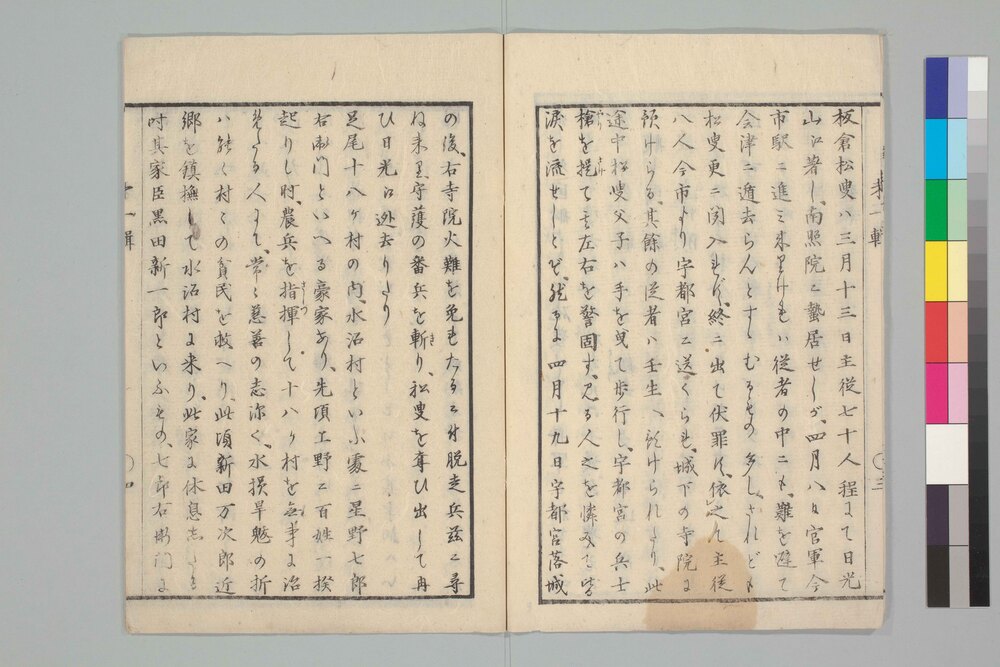 板倉松叟ハ三月十三日主従七十人程にて日光
山江着し、南照院ニ蟄居せしが、四月八日官軍今
市駅ニ進ミ来りけれハ従者の中ニも、難を避て
会津ニ遁去らんとすゝむるもの多し、されども
松叟更ニ聞入れず、終ニ出て伏罪ス、依之主従
八人今市より宇都宮に送くられ、城下の寺院に
預けらる、其餘の従者ハ壬生へ預けられたり、此
途中松叟父子ハ手を曳て歩行し、宇都宮の兵士
槍を提て其左右を警固す、見る人之を憐みて皆
涙を流せしとぞ、然るに四月十九日宇都宮落城
の後、右寺院火難を免れたるニ付脱走兵茲ニ尋
ね来り守護の番兵を斬り、松叟を奪ひ出して再
ひ日光江逃去りたり
足尾十八ヶ村の内、水沼村といふ處ニ星野七郎
右衛門といへる豪家あり、先頃上野ニ百姓一揆
起りし時、農兵を指揮して十八ヶ村を無事に治
めたる人にて、常々慈善の志深く、水損旱魃の折
ハ能く村々の貧民を救へり、此頃新田万次郎近
郷を鎮撫して水沼村に来り、此家に休息したる
時其家臣黒田新一郎といふもの、七郎右衛門に